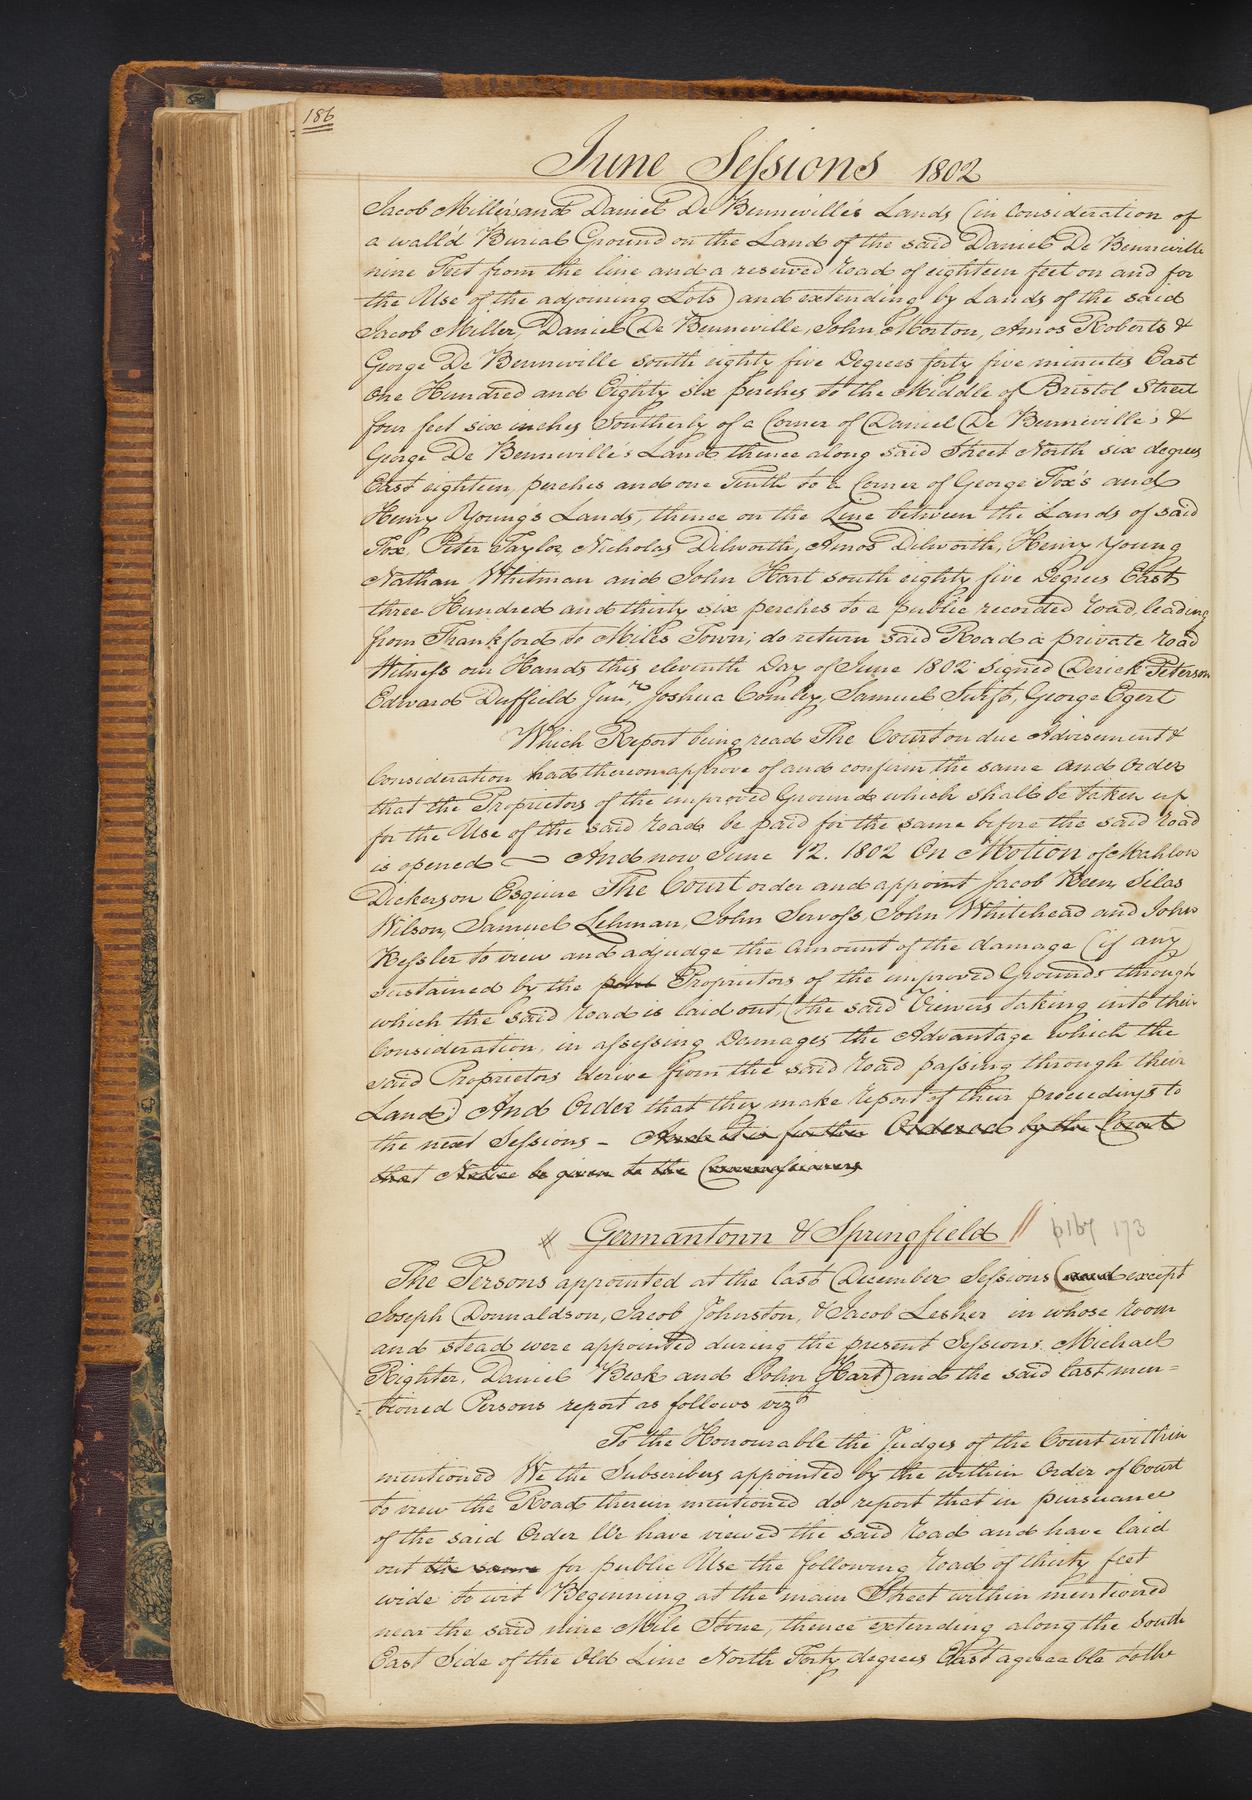 186
June Sessions 1802
Jacob Miller's and Daniel De Benneville's Lands (in Consideration of
a wall'd Burial Ground on the Land of the said Daniel De Benneville
nine Feet from the line and a reserved road of eighteen feet on and for
the Use of the adjoining Lots) and extending by Lands of the said
Jacob Miller, Daniel De Benneville, John Morton, Amos Roberts &
George De Benneville south eighty five Degrees forty five minutes East
One Hundred and Eighty six perches to the Middle of Bristol Street
four feet six inches Southerly of a Corner of Daniel De Benneville's &
George De Benneville's Land thence along said Street North six degrees
East eighteen perches and one Tenth to a Corner of George Fox's and
Henry Young's Lands, thence on the Line between the Lands of said
Fox, Peter Taylor, Nicholas Dilworth, Amos Dilworth, Henry Young
Nathan Whitman and John Hart south eighty five Degrees East
three Hundred and thirty six perches to a public recorded road leading
from Frankford to Miles Town; do return said Road a private road
Witness our Hands this eleventh Day of June 1802 signed Derick Peterson
Edward Duffield Junr, Joshua Comley, Samuel Swift, George Egert
Which Report being read The Court on due Advisement &
Consideration had thereon approve of and confirm the same and Order
that the Proprietors of the improved Ground which shall be taken up
for the Use of the said road be paid for the same before the said road
is opened — And now June 12. 1802 On Motion of Mahlon
Dickerson Esquire The Court order and appoint Jacob Keen, Silas
Wilson, Samuel Lehman, John Servoss, John Whitehead and John
Kessler to view and adjudge the amount of the damage (if any)
sustained by the Proprietors of the improved Grounds through
which the said road is laid out, (the said Viewers taking into their
Consideration, in assessing Damages the Advantage which the
said Proprietors derive from the said road passing through their
Land) And Order that they make report of their proceedings to
the next Sessions - And it is further Ordered by the Court
that Notice be given to the Commissioners
Germantown & Springfield // p167 173
The Persons appointed at the last December Sessions (and except
Joseph Donnaldson, Jacob Johnston, & Jacob Lesher in whose room
and stead were appointed during the present Sessions Michael
Righter, Daniel Beck and John Hart) and the said last men=
=tioned Persons report as follows vizt
To the Honourable the Judges of the Court within
mentioned We the Subscribers appointed by the within Order of Court
to view the Road therein mentioned do report that in pursuance
of the said Order We have viewed the said road and have laid
out the same for public Use the following road of thirty feet
wide to wit Beginning at the main Street within mentioned
near the said nine Mile Stone, thence extending along the South
East Side of the Old Line North Forty degrees East agreeable to the